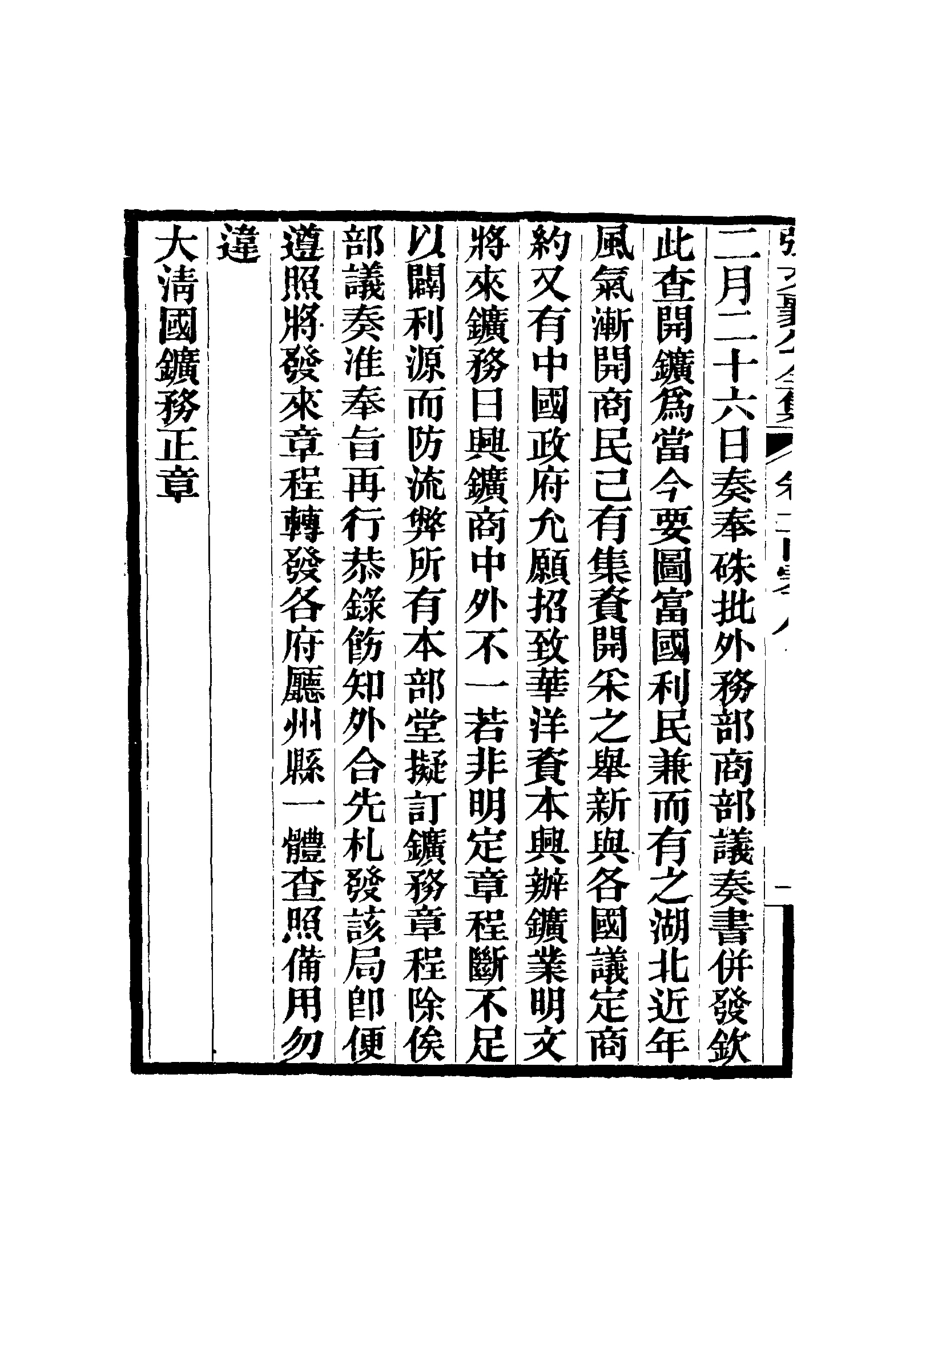 二月二十六日奏奉硃批外務部商部議奏書併發欽
此查開鑛爲當今要圖富國利民兼而有之湖北近年
風氣漸開商民已有集資開采之舉新與各國議定商
約又有中國政府允願招致華洋資本興辦鑛業明文
將來鑛務日興鑛商中外不一若非明定章程斷不足
以闢利源而防流弊所有本部堂擬訂鑛務章程除俟
部議奏准奉旨再行恭錄飭知外合先札發該局卽便
遵照將發來章程轉發各府廳州縣一體查照備用勿
違
大淸國鑛務正章